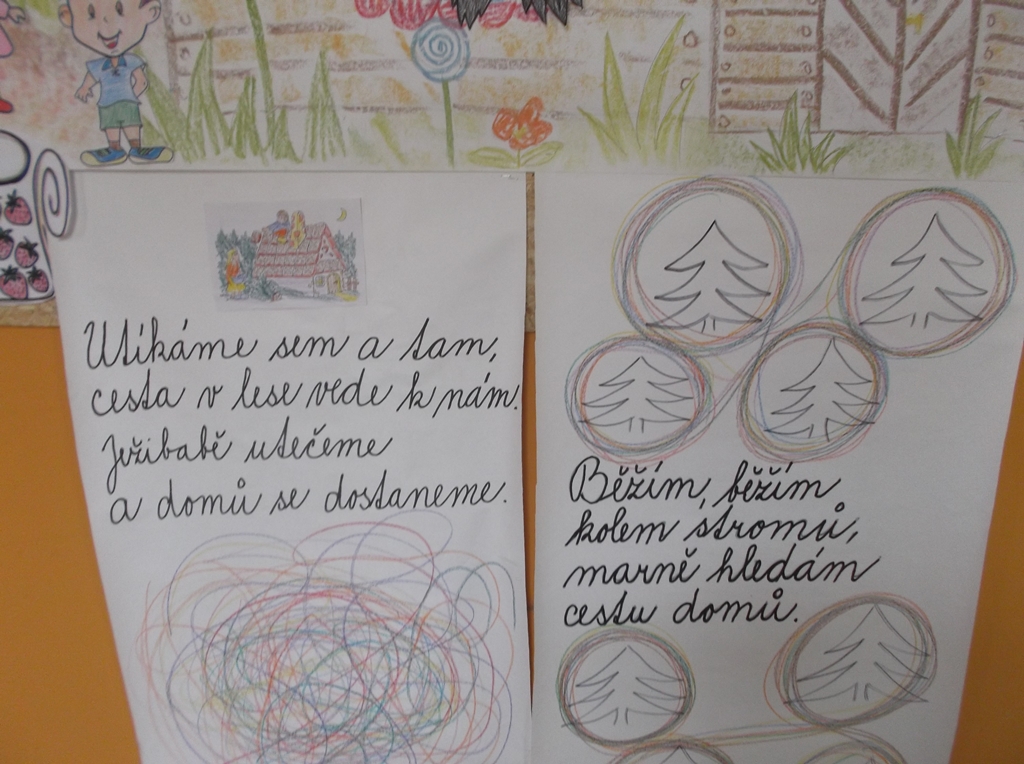 Utíkáme sem a tam,
cesta v lese vede k nám.
Ježibabě utečeme
a domů se dostaneme.
Běžím, běžím
kolem stromů,
marně hledám
cestu domů.